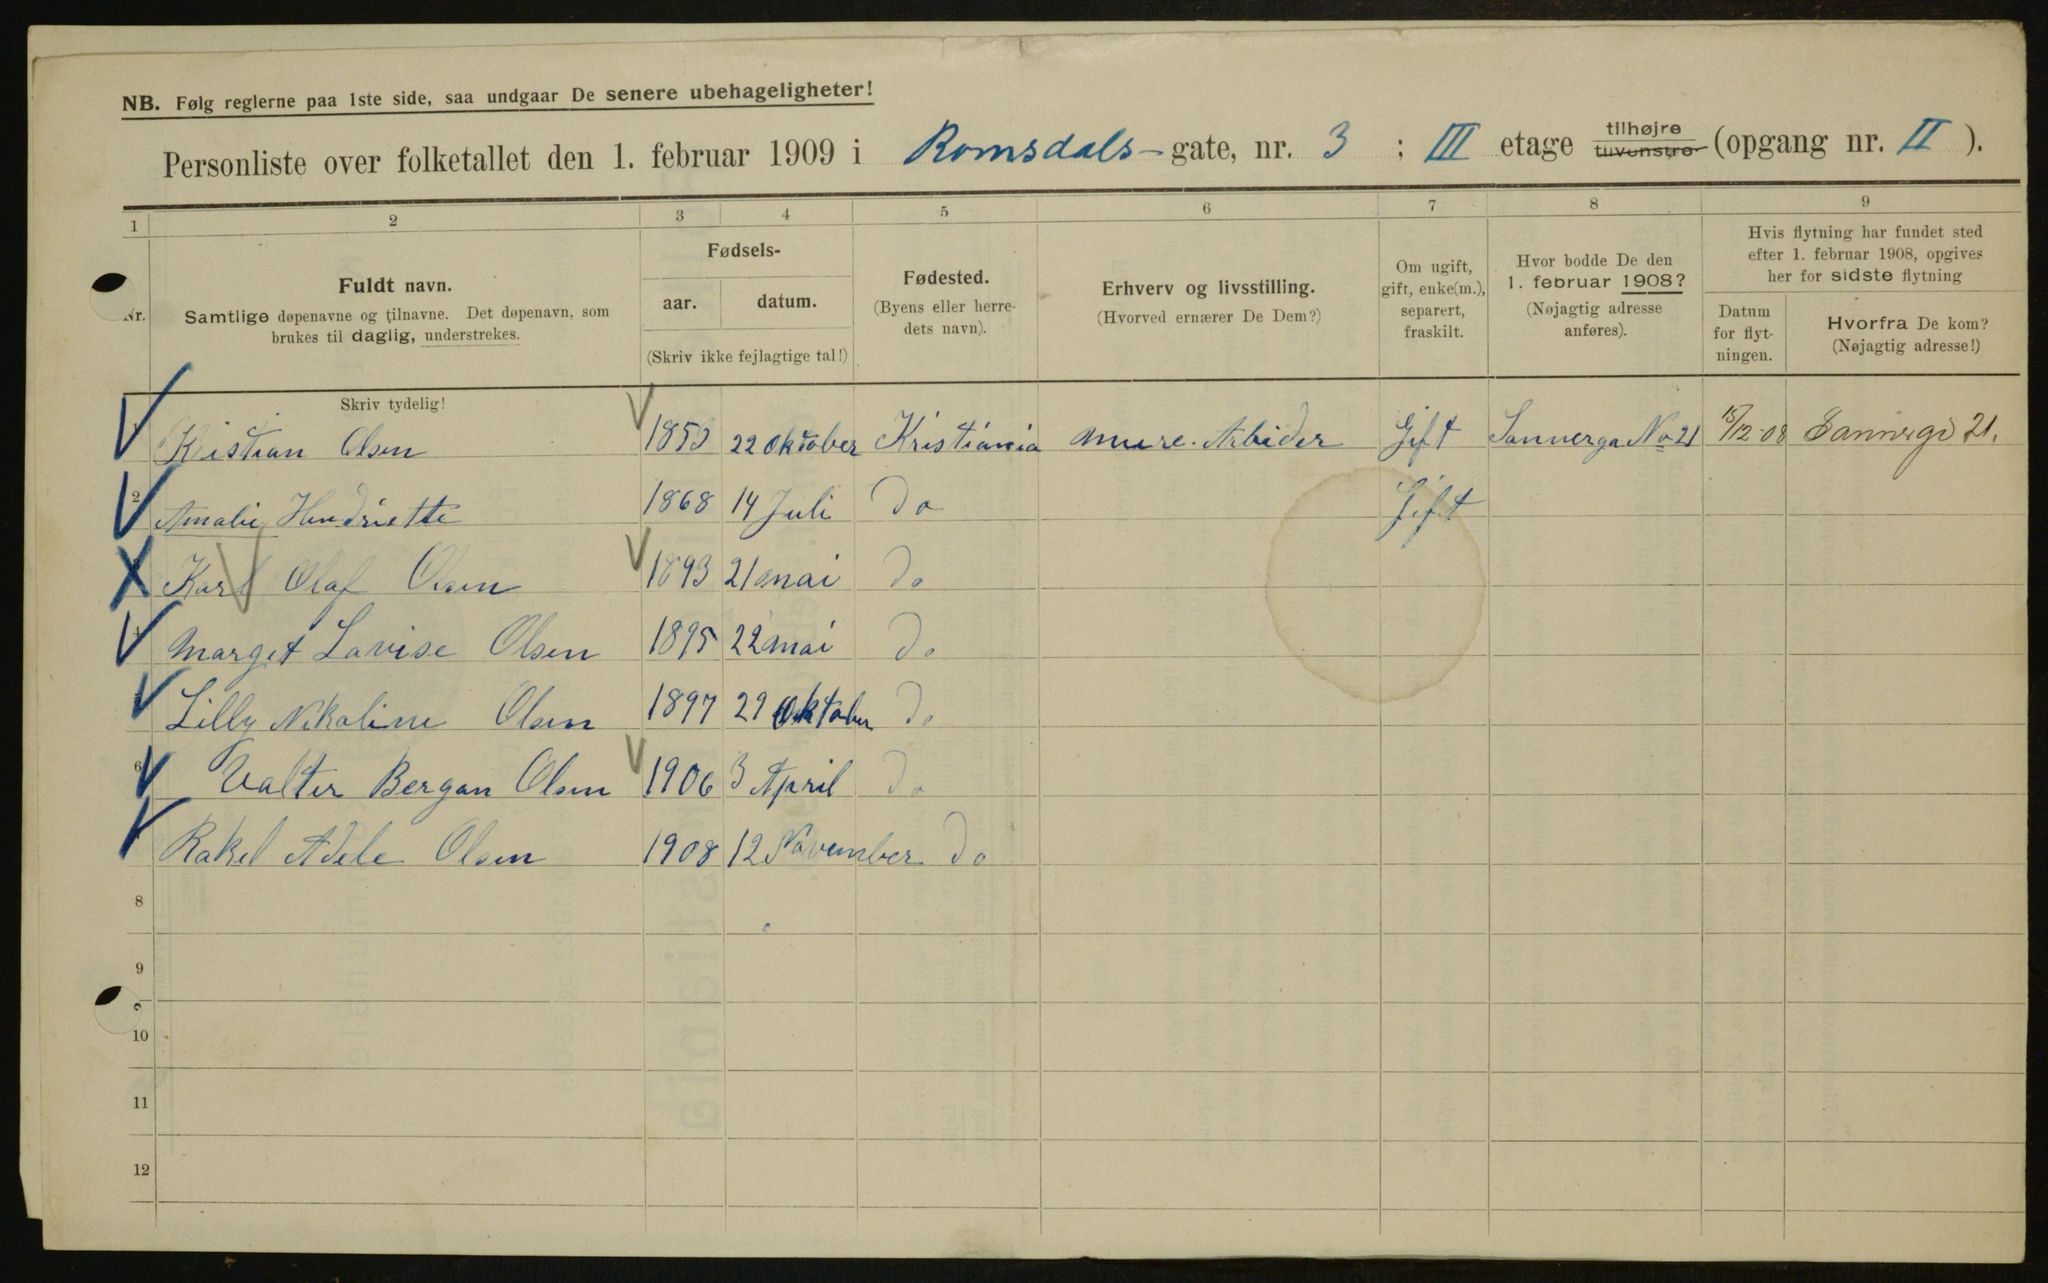 NB. Følg reglerne paa 1ste side, saa undgaar De senere ubehageligheter!
Personliste over folketallet den 1. februar 1909 i Romsdals-gate, nr. 3 ; III etage tilhøjre tilvenstre (opgang nr. II ).
1 2 3 4 5 6 7 8 9
Nr.
Fuldt navn.
Samtlige døpenavne og tilnavne. Det døpenavn, som
brukes til daglig, understrekes.
Skriv tydelig!
Fødsels-
aar. datum.
(Skriv ikke fejlagtige tal!)
Fødested.
(Byens eller herre-
dets navn).
Erhverv og livsstilling.
(Hvorved ernærer De Dem?)
Om ugift,
gift, enke(m.),
separert,
fraskilt.
Hvor bodde De den
1. februar 1908?
(Nøjagtig adresse
anføres).
Hvis flytning har fundet sted
efter 1. februar 1908, opgives
her for sidste flytning
Datum
for flyt-
ningen.
Hvorfra De kom?
(Nøjagtig adresse!)
Kristian Olsen 1853 22 Oktober Kristiania mure. Arbider Gift Sannerga No 21 15/12-08 Sannergd 21.
2 Amalie Hendriette 1868 14 Juli Do Gift
Karl Olaf Olsen 1893 21 mai Do
4 Marget Lovise Olsen 1895 22 mai Do
Lilly Nikoline Olsen 1897 29 Oktober Do
6 Valter Bergan Olsen 1906 3 April Do
Rakel Adele Olsen 1908 12 November Do
8
9
10
11
12